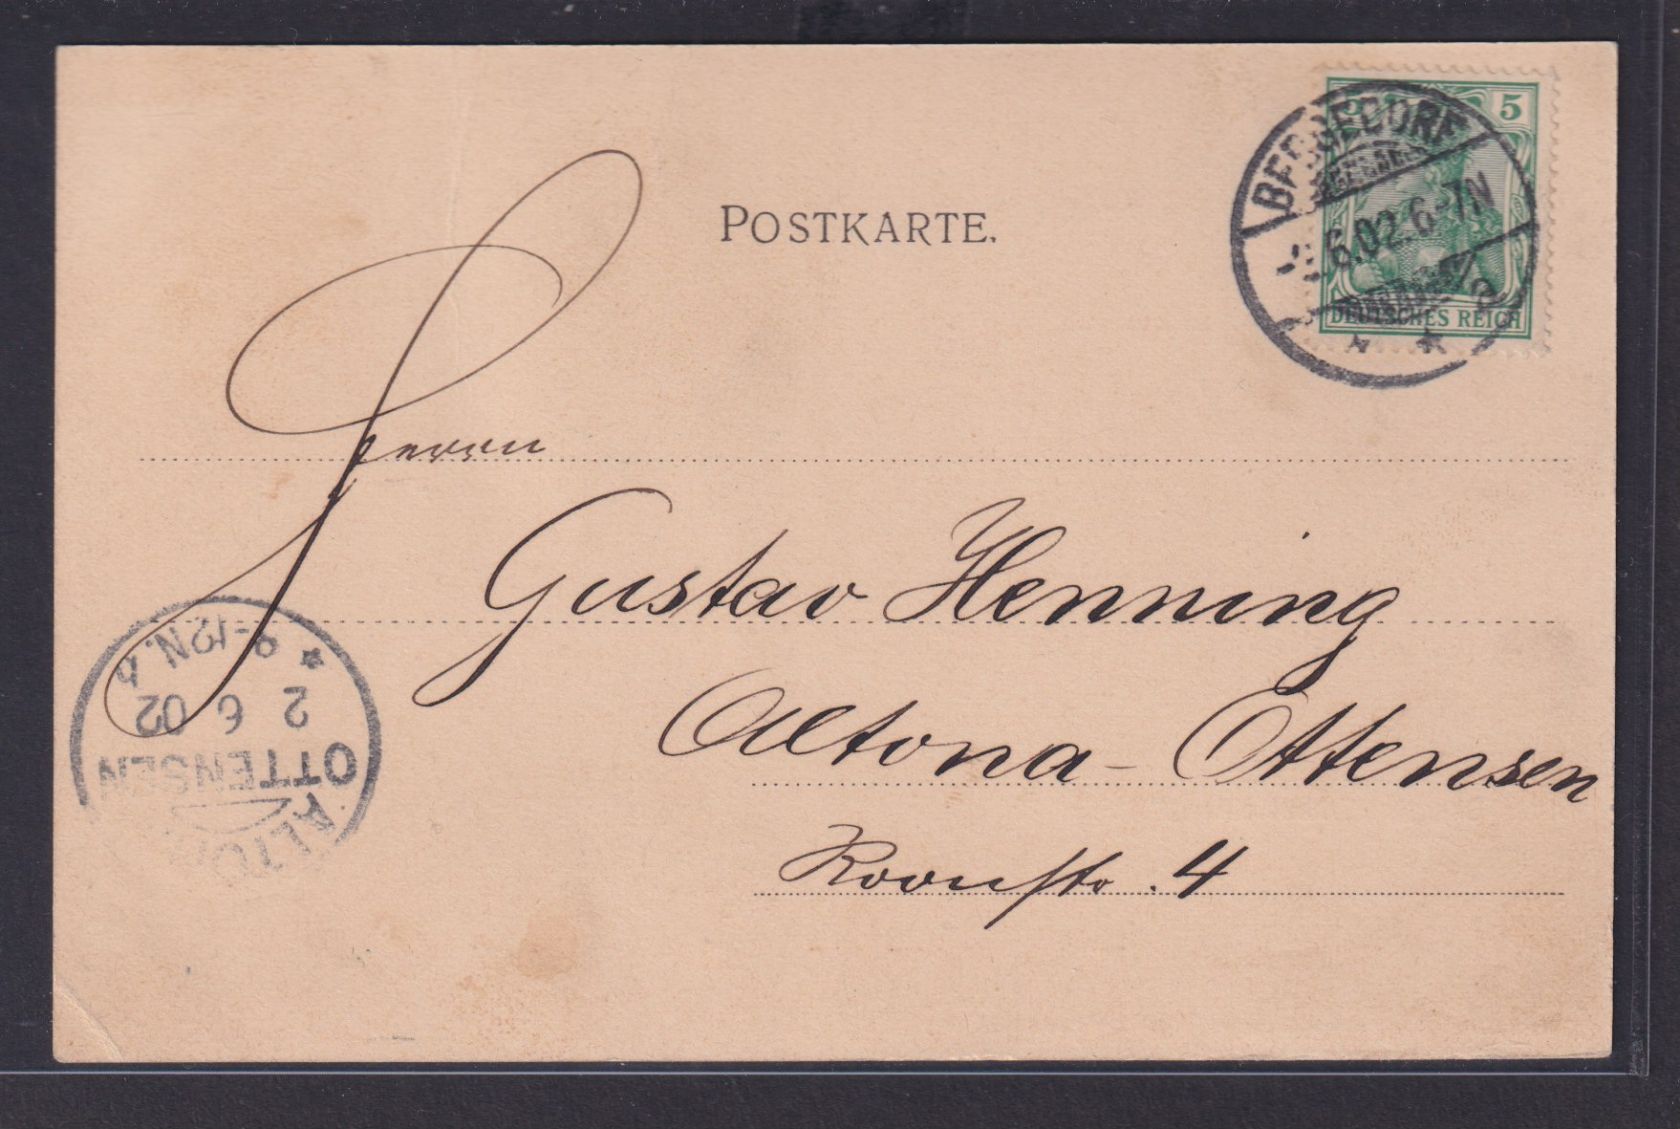 POSTKARTE.
5
BERGEDORF
6.02.6-7N
a
DEUTSCHES REICH
Herrn
Gustav Henning
Altona - Ottensen
Roonstr. 4
ALTONA
OTTENSEN
2 6 02
9-12 N.